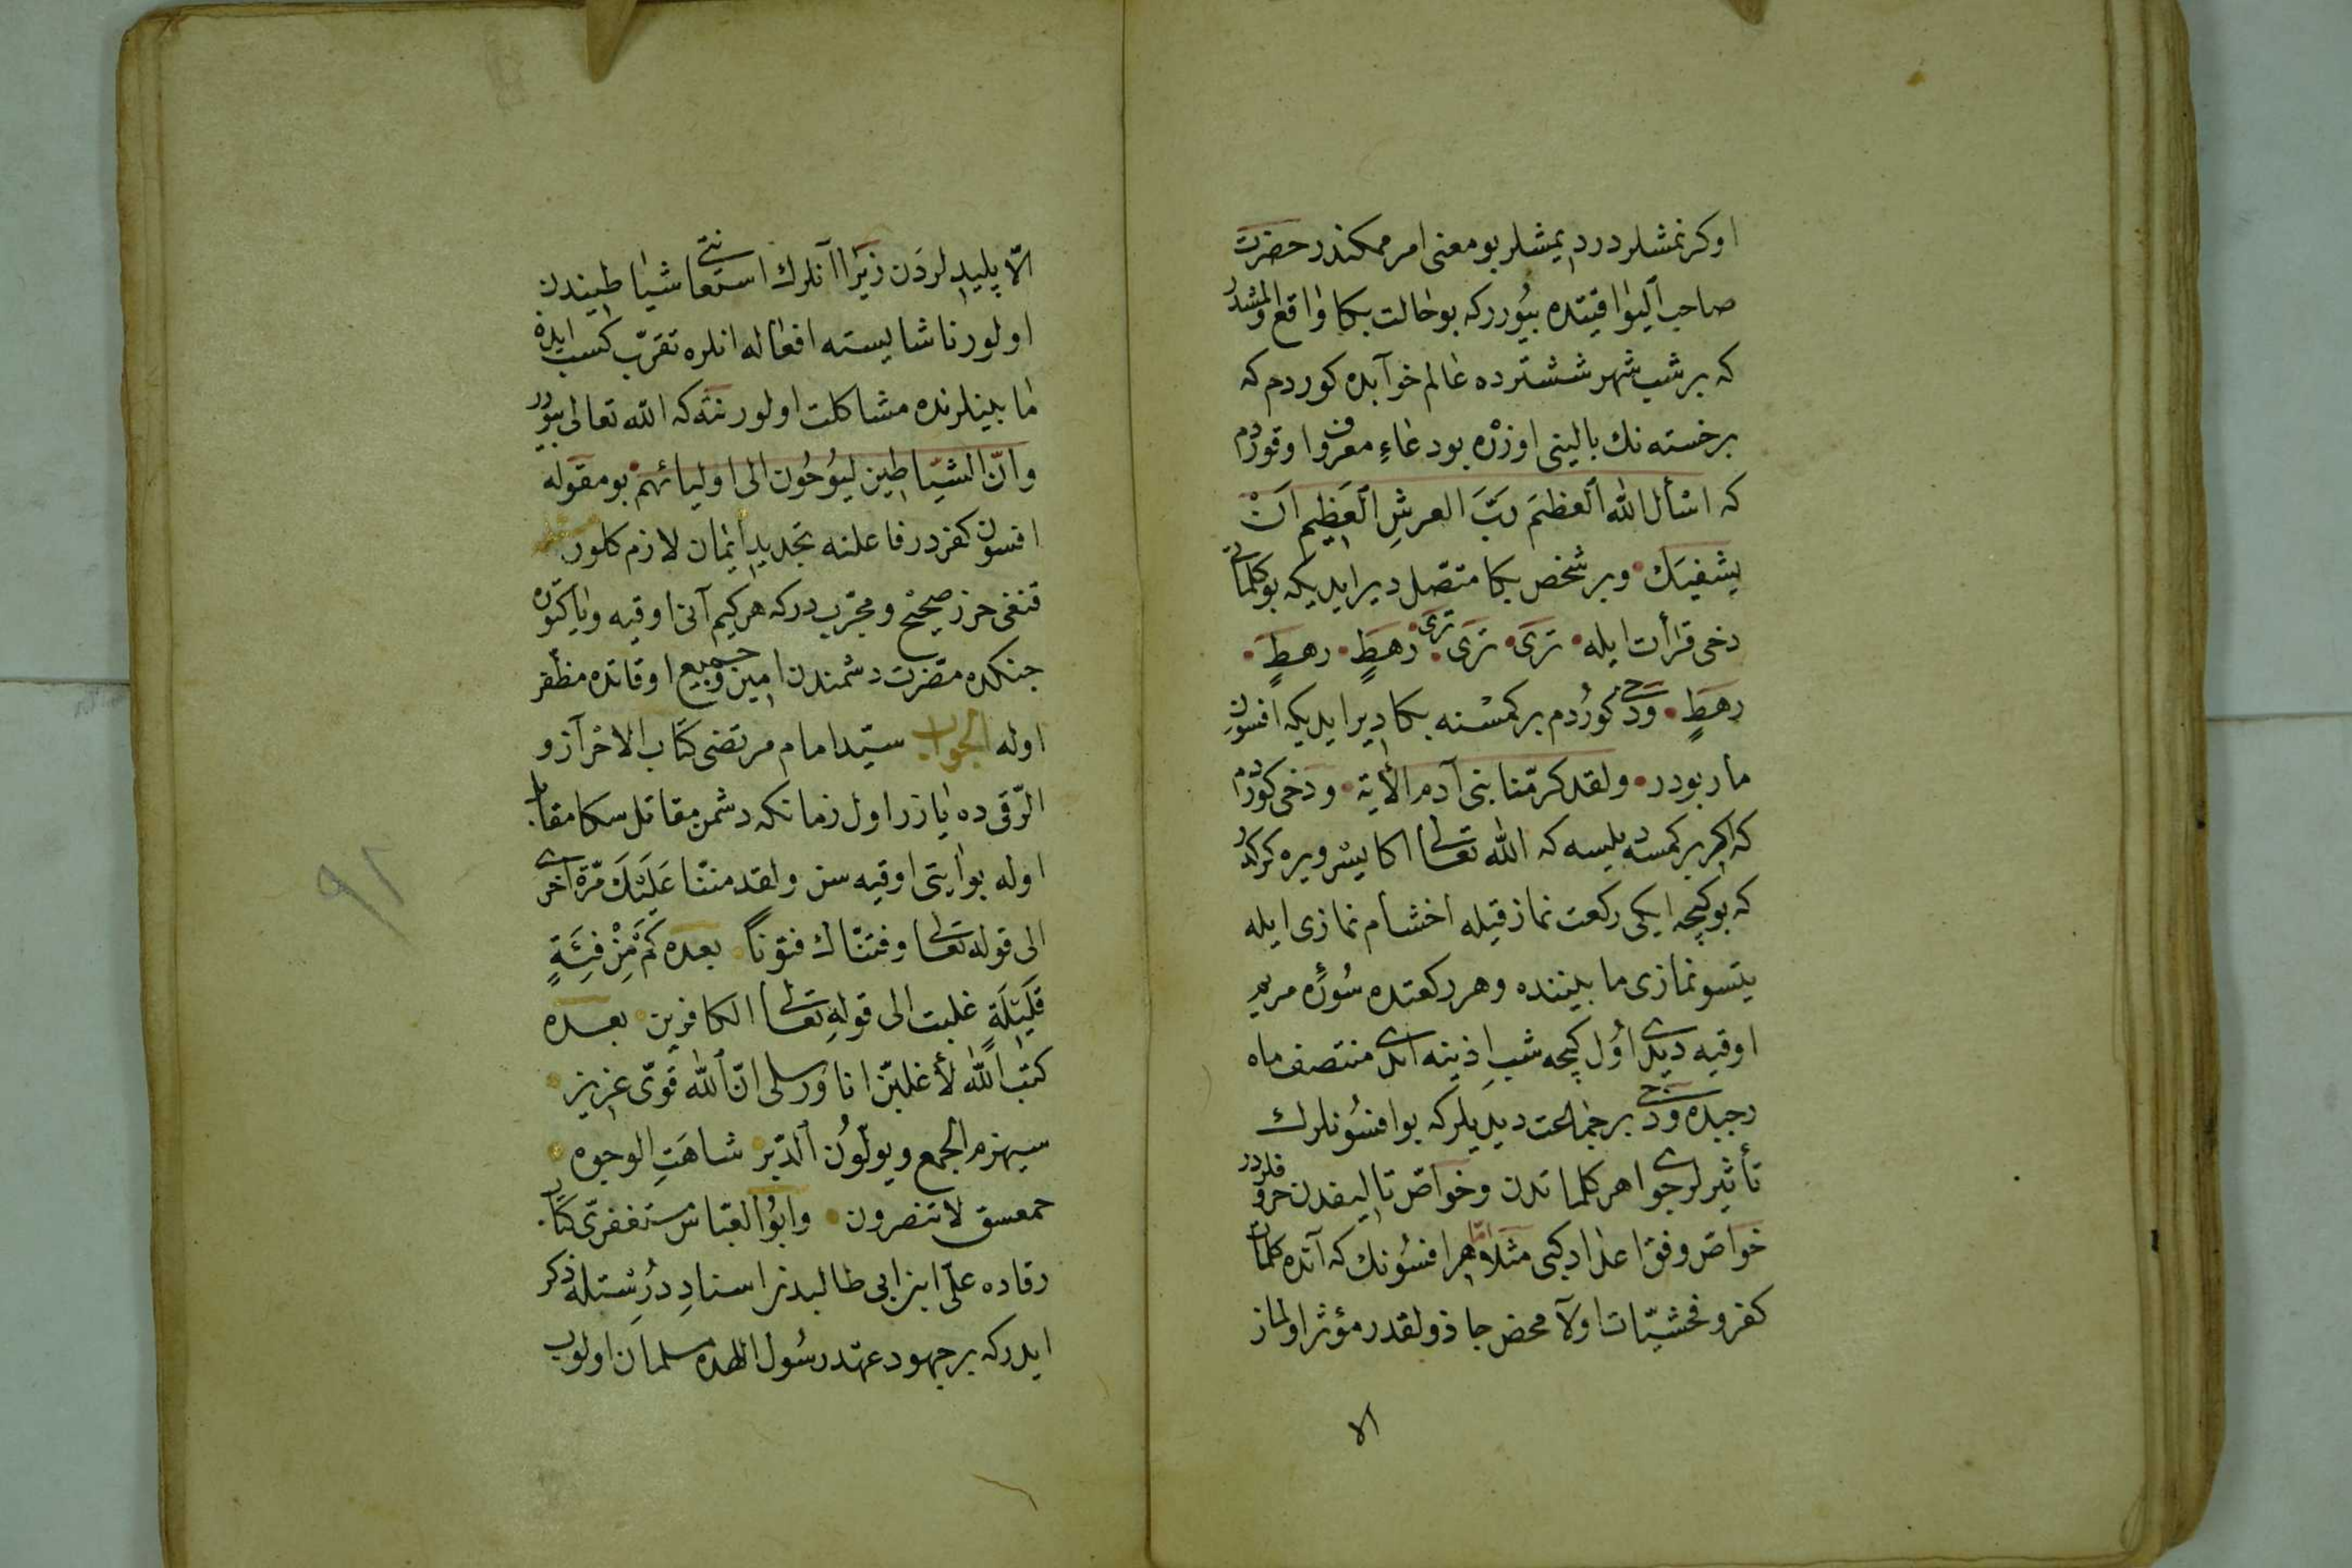 اوكرنمشلردر ديمشلر بو معنى امر ممكندر حضرت
صاحب اليواقيتده بيورر كه بو حالت بكا واقع اولمشدر
كه بر شب شهر ششترده عالم خوابده كوردم كه
بر خسته نك بالينى اوزره بو دعاء معروف اوقوردم
كه اسأل الله العظيم رب العرش العظيم ان
يشفيك وبر شخص بكا متصل دير ايديكه بو كلماتى
دخى قرأت ايله ترى ترى ترى رهط رهط
رهط ودخى كوردم بر كمسنه بكا دير ايديكه افسون
مار بودر ولقد كرمنا بنى آدم الآية ودخى كوردم
كه اكر بر كمسه ديلسه كه الله تعالى اكا يسر ويره كركدر
كه بو كيجه ايكى ركعت نماز قيله اخشام نمازى ايله
يتسو نمازى مابيننده وهر ركعتده سورۀ مريم
اوقيه ديدى اول كيجه شب اذينه ايدى منتصف ماه
رجبده ودخى بر جماعت ديديلر كه بو افسونلرك
تأثيرلرى جواهر كلماتدن وخواص تاليفدن حروفلردر
خواص وفق اعداد كبى مثلا اما هر افسونك كه آنده كلمات
كفر وفحشيات اولا محض جاذولقدر مؤثر اولماز
الا
الا پليدلردن زيرا آنلرك استعانتى شياطيندن
اولور ناشايسته افعاله انلره تقرب كسب ايدر
مابينلرنده مشاكلت اولور نته كه الله تعالى بيورر
وان الشياطين ليوحون الى اوليائهم بو مقوله
افسون كفردر فاعلنه تجديد ايمان لازم كلور
قنغى حرز صحيح ومجربدر كه هر كيم آنى اوقيه ويا كتوره
جنكده مضرت دشمندن امين وجميع اوقاتده مظفر
اوله الجواب سيد امام مرتضى كتاب الاحراز و
الرقى ده يازر اول زمانكه دشمن مقاتل سكا مقابل
اوله بو ايتى اوقيه سن ولقد مننا عليك مرة اخرى
الى قوله تعالى وفتناك فتونا بعده كم من فئة
قليلة غلبت الى قوله تعالى الكافرين بعده
كتب الله لأغلبن انا ورسلى ان الله قوى عزيز
سيهزم الجمع ويولون الدبر شاهت الوجوه
حمعسق لا تنصرون وابو العباس مستغفرى كتاب
رقاده على ابن ابى طالبدن اسناد درستله ذكر
ايدر كه بر جهود عهد رسول اللهده مسلمان اولوب
٩٢